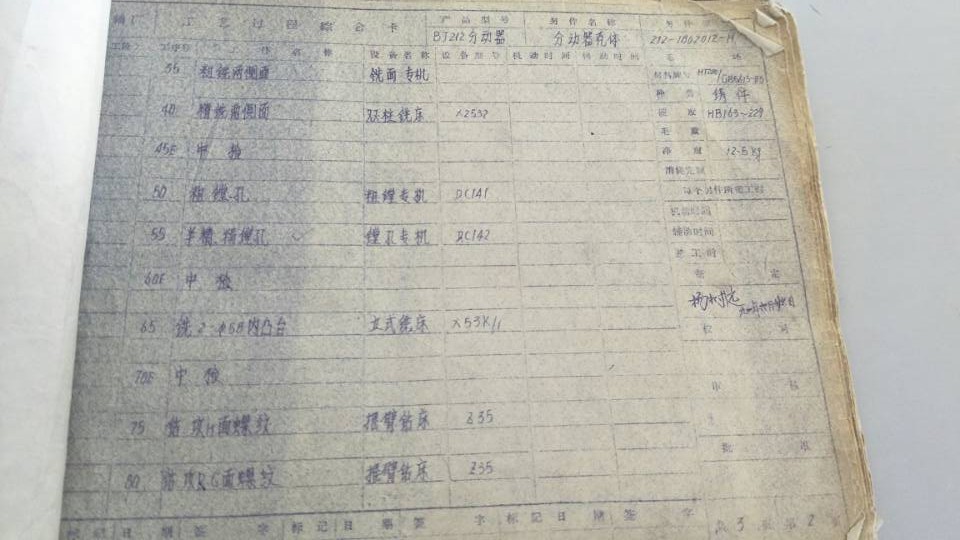 工艺过程综合卡 产品型号 另件名称
BJ212分动器 分动器壳体 212-1802012-A
工序号 设备名称 设备型号 机动时间 辅助时间
35 粗铣两侧面 铣面专机
40 精铣两侧面 双柱铣床 X2532
45E 中检
50 粗镗孔 粗镗专机 DC141
55 半精.精镗孔 镗孔专机 DC142
60E 中检
65 铣2-φ58内凸台 立式铣床 X53K/1
70E 中检
75 钻攻H面螺纹 摇臂钻床 Z35
80 钻攻R.G面螺纹 摇臂钻床 Z35
种类 铸件
硬度 HB163~229
毛重
净重 12.5kg
每个另件所需工时
机动时间
辅助时间
总工时
签定
校对
审核
批准
标记 日期 签字 标记 日期 签字 标记 日期 签字
共3页 第2页